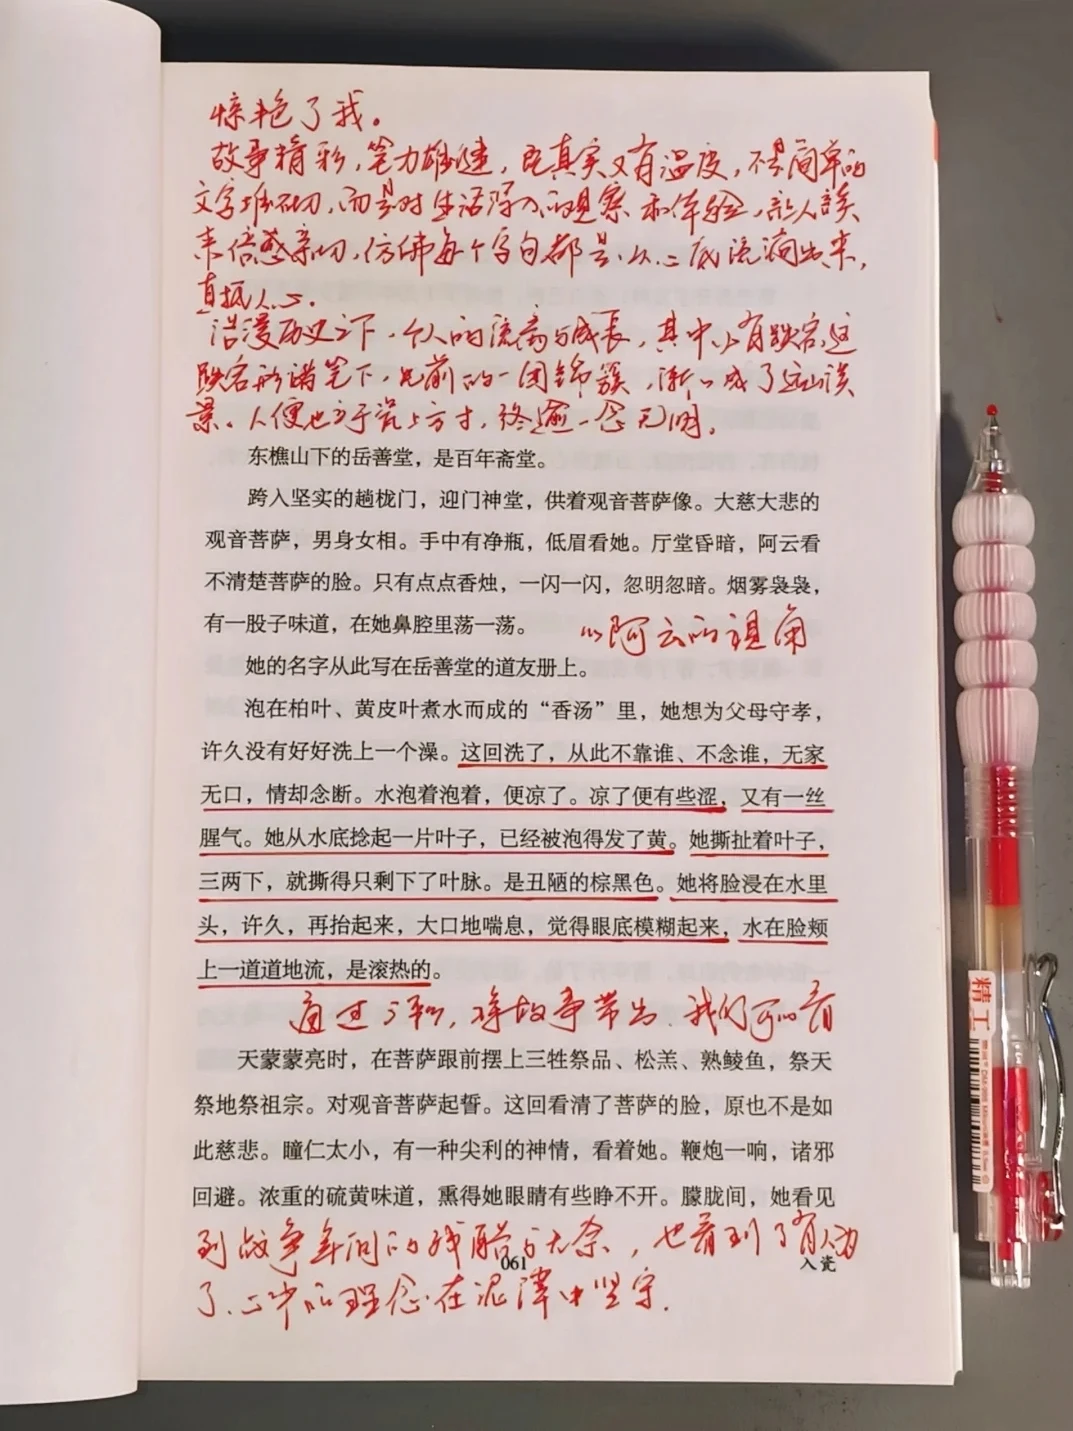 惊艳了我。
故事精彩,笔力雄健,既真实又有温度,不是简单的
文字堆砌,而是对生活深入的观察和体验,
来倍感亲切,仿佛每个字句都是从心底流淌出来,
直抵人心.
浩漫历史之下,个人的流离与成长,其中必有跌宕,这
跌宕形诸笔下,眼前的一团锦簇,渐渐成了远山淡
景。人便也于瓷上方寸,终逾一念无明。
东樵山下的岳善堂,是百年斋堂。
跨入坚实的趟栊门,迎门神堂,供着观音菩萨像。大慈大悲的
观音菩萨,男身女相。手中有净瓶,低眉看她。厅堂昏暗,阿云看
不清楚菩萨的脸。只有点点香烛,一闪一闪,忽明忽暗。烟雾袅袅,
有一股子味道,在她鼻腔里荡一荡。
以阿云的视角
她的名字从此写在岳善堂的道友册上。
泡在柏叶、黄皮叶煮水而成的“香汤”里,她想为父母守孝,
许久没有好好洗上一个澡。这回洗了,从此不靠谁、不念谁,无家
无口,情却念断。水泡着泡着,便凉了。凉了便有些涩,又有一丝
腥气。她从水底捻起一片叶子,已经被泡得发了黄。她撕扯着叶子,
三两下,就撕得只剩下了叶脉。是丑陋的棕黑色。她将脸浸在水里
头,许久,再抬起来,大口地喘息,觉得眼底模糊起来,水在脸颊
上一道道地流,是滚热的。
通过,将故事带出,我们可以看
天蒙蒙亮时,在菩萨跟前摆上三牲祭品、松羔、熟鲮鱼,祭天
祭地祭祖宗。对观音菩萨起誓。这回看清了菩萨的脸,原也不是如
此慈悲。瞳仁太小,有一种尖利的神情,看着她。鞭炮一响,诸邪
回避。浓重的硫黄味道,熏得她眼睛有些睁不开。朦胧间,她看见
到战争年间的残酷与无奈,也看到了有人为
061
入瓷
了心中的理念在泥潭中坚守.
精工